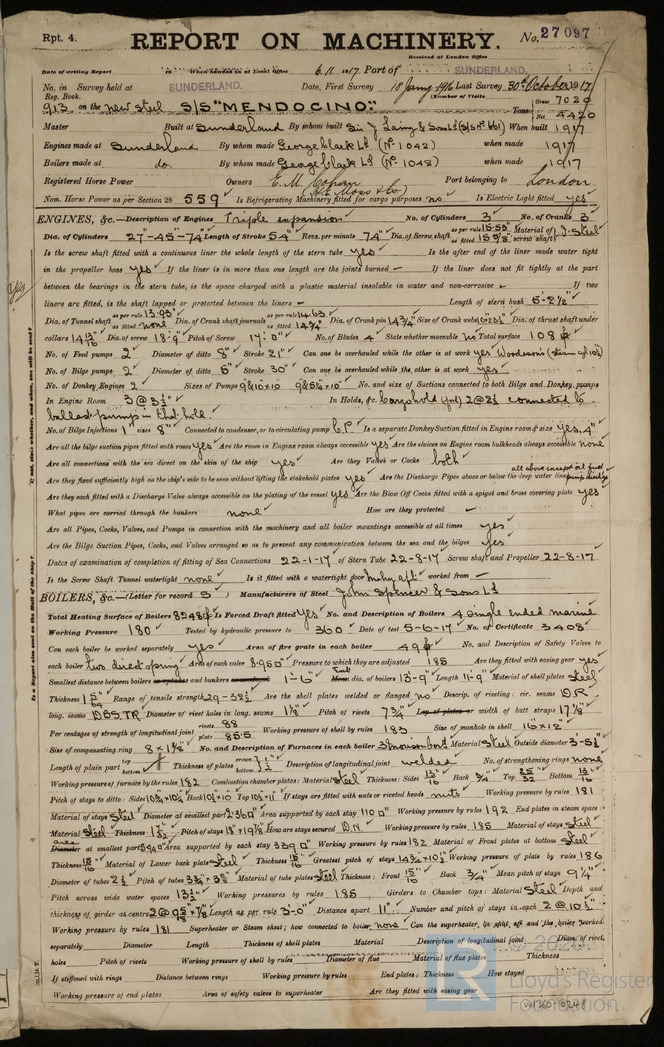 Rpt. 4.
REPORT ON MACHINERY.
No. 27097
Received at London Office
Date of writing Report 19 When handed in at Local Office 6.11.1917 Port of SUNDERLAND.
No. in Survey held at SUNDERLAND. Date, First Survey 18 Jany 1916 Last Survey 30th October 1917
Reg. Book. (Number of Visits
913 on the new steel S/S "MENDOCINO." Tons Gross 7020 Net 4420
Master Built at Sunderland By whom built Sir J. Laing & Sons Ld (S/S No 661) When built 1917
Engines made at Sunderland By whom made George Clark Ld (No 1042) when made 1917
Boilers made at do. By whom made George Clark Ld (No 1042) when made 1917
Registered Horse Power Owners E. M. Cohan (H.E. Moss & Co) Port belonging to London
Nom. Horse Power as per Section 28 559 Is Refrigerating Machinery fitted for cargo purposes no Is Electric Light fitted yes
ENGINES, &c.—Description of Engines Triple expansion No. of Cylinders 3 No. of Cranks 3
Dia. of Cylinders 27"-45"-74" Length of Stroke 54" Revs. per minute 74 Dia. of Screw shaft as per rule 15.55 as fitted 15 5/8" Material of screw shaft) I. Steel
Is the screw shaft fitted with a continuous liner the whole length of the stern tube yes Is the after end of the liner made water tight
in the propeller boss yes If the liner is in more than one length are the joints burned — If the liner does not fit tightly at the part
between the bearings in the stern tube, is the space charged with a plastic material insoluble in water and non-corrosive — If two
liners are fitted, is the shaft lapped or protected between the liners — Length of stern bush 5'-2½"
Dia. of Tunnel shaft as per rule 13.95 as fitted none Dia. of Crank shaft journals as per rule 14.65 as fitted 14¾" Dia. of Crank pin 14¾" Size of Crank webs Dia. of thrust shaft under
collars 14 13/16 Dia. of screw 18'-9" Pitch of Screw 17'-0" No. of Blades 4 State whether moveable no Total surface 108
No. of Feed pumps 2 Diameter of ditto 8" Stroke 21" Can one be overhauled while the other is at work yes
No. of Bilge pumps 2 Diameter of ditto 5" Stroke 30" Can one be overhauled while the other is at work yes
No. of Donkey Engines 2 Sizes of Pumps No. and size of Suctions connected to both Bilge and Donkey pumps
In Engine Room 3 @ 3½" In Holds, &c. cargo hold 2 @ connected to
ballast pump in that hold.
No. of Bilge Injections 1 sizes 8" Connected to condenser, or to circulating pump C.P. Is a separate Donkey Suction fitted in Engine room & size yes, 4"
Are all the bilge suction pipes fitted with roses yes Are the roses in Engine room always accessible yes Are the sluices on Engine room bulkheads always accessible none
Are all connections with the sea direct on the skin of the ship yes Are they Valves or Cocks both
Are they fixed sufficiently high on the ship's side to be seen without lifting the stokehold plates yes Are the Discharge Pipes above or below the deep water line all above except oil fuel pump discharge
Are they each fitted with a Discharge Valve always accessible on the plating of the vessel yes Are the Blow Off Cocks fitted with a spigot and brass covering plate yes
What pipes are carried through the bunkers none How are they protected —
Are all Pipes, Cocks, Valves, and Pumps in connection with the machinery and all boiler mountings accessible at all times yes
Are the Bilge Suction Pipes, Cocks, and Valves arranged so as to prevent any communication between the sea and the bilges yes
Dates of examination of completion of fitting of Sea Connections 22-1-17 of Stern Tube 22-8-17 Screw shaft and Propeller 22-8-17
Is the Screw Shaft Tunnel watertight none Is it fitted with a watertight door worked from —
BOILERS, &c.—(Letter for record S ) Manufacturers of Steel John Spencer & Sons Ld
Total Heating Surface of Boilers 8248 Is Forced Draft fitted yes No. and Description of Boilers 4 single ended marine
Working Pressure 180 Tested by hydraulic pressure to 360 Date of test 5-6-17 No. of Certificate 3408
Can each boiler be worked separately yes Area of fire grate in each boiler 49 No. and Description of Safety Valves to
each boiler two direct spring Area of each valve 8.950 Pressure to which they are adjusted 185 Are they fitted with easing gear yes
Smallest distance between boilers and bunkers 1'-6" dia. of boilers 13'-9" Length 11'-9" Material of shell plates Steel
Thickness Range of tensile strength 29-32½ Are the shell plates welded or flanged no Descrip. of riveting: cir. seams D.R.
long. seams D.B.S.T.R. Diameter of rivet holes in long. seams 1⅛ Pitch of rivets 7¾ width of butt straps 17⅛"
Per centages of strength of longitudinal joint rivets 88 plate 85.5 Working pressure of shell by rules 183 Size of manhole in shell 16" x 12"
Size of compensating ring No. and Description of Furnaces in each boiler 3 Morison Material Steel Outside diameter
Length of plain part top bottom Thickness of plates crown bottom Description of longitudinal joint welded No. of strengthening rings none
Working pressure of furnace by the rules 182 Combustion chamber plates: Material Steel Thickness: Sides Back ¾" Top Bottom
Pitch of stays to ditto: Sides Back Top If stays are fitted with nuts or riveted heads nuts Working pressure by rules 181
Material of stays Steel Diameter at smallest part Area supported by each stay 110 Working pressure by rules 192 End plates in steam space:
Material Steel Thickness Pitch of stays How are stays secured D.N. Working pressure by rules 185 Material of stays Steel
Area at smallest part Area supported by each stay Working pressure by rules 182 Material of Front plates at bottom Steel
Thickness Material of Lower back plate Steel Thickness Greatest pitch of stays Working pressure of plate by rules 186
Diameter of tubes 2½ Pitch of tubes Material of tube plates Steel Thickness: Front Back ¾" Mean pitch of stays 9¼"
Pitch across wide water spaces 13½" Working pressures by rules 185 Girders to Chamber tops: Material Steel Depth and
thickness of girder at centre Length as per rule 3'-0" Distance apart 11" Number and pitch of stays in each 2 @ 10½"
Working pressure by rules 181 Superheater or Steam chest; how connected to boiler none Can the superheater be shut off and the boiler worked
separately Diameter Length Thickness of shell plates Material Description of longitudinal joint Diam. of rivet
holes Pitch of rivets Working pressure of shell by rules Diameter of flue Material of flue plates Thickness
If stiffened with rings Distance between rings Working pressure by rules End plates: Thickness How stayed
Working pressure of end plates Area of safety valves to superheater Are they fitted with easing gear
Is a Report also sent on the Hull of the ship?
© 2020
LR
Lloyd's Register
Foundation
W1360-0248